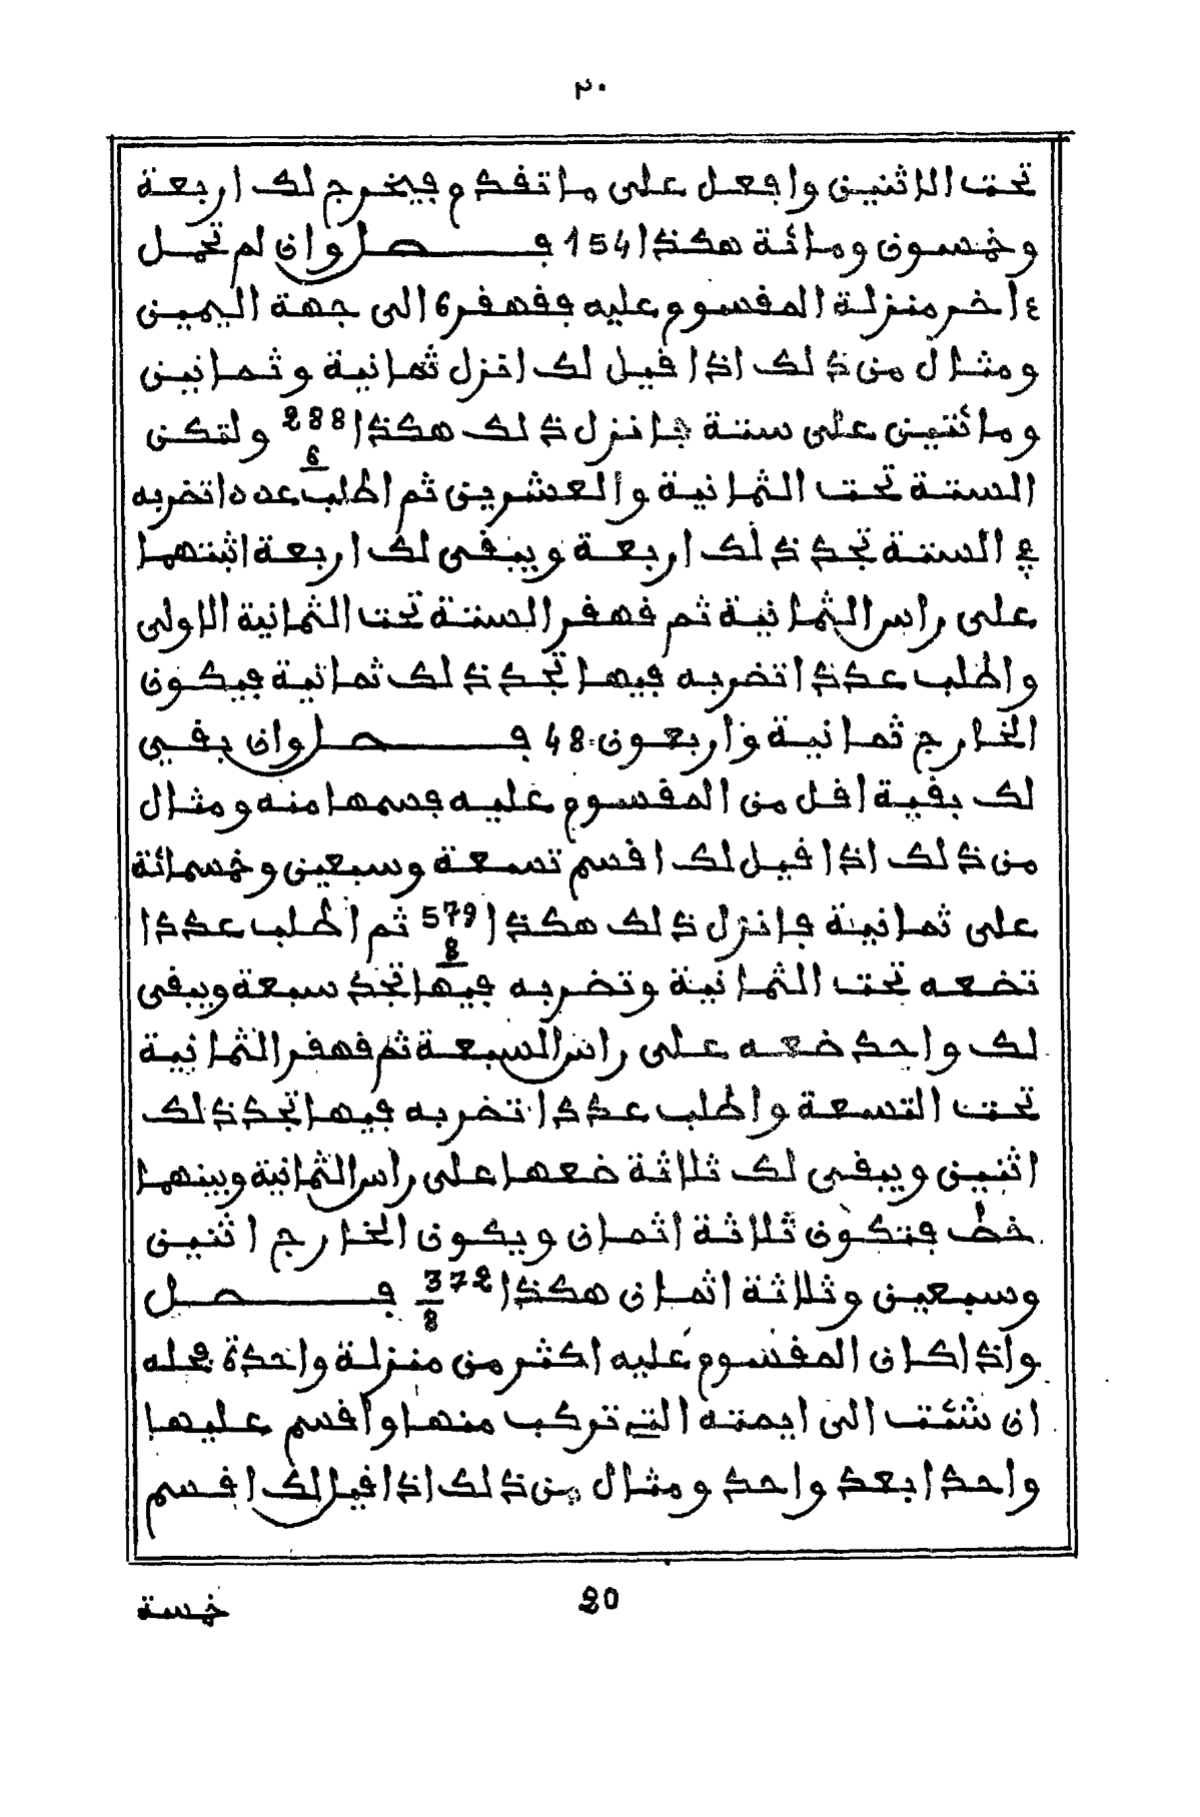 ٢٠
تحت الاثنين وافعل على ما تقدم فيخرج لك اربعة
وخمسون ومائة هكذا 154 فصل وان لم تحمل
ء اخر منزلة المقسوم عليه فقهقره الى جهة اليمين
ومثال من ذلك اذا قيل لك انزل ثمانية وثمانين
ومائتين على ستة فانزل ذلك هكذا 288/6 ولتكن
الستة تحت الثمانية والعشرين ثم اطلب عددا تضربه
في الستة تجد ذلك اربعة ويبقى لك اربعة اثبتها
على راس الثمانية ثم قهقر الستة تحت الثمانية الاولى
واطلب عددا تضربه فيها تجد ذلك ثمانية فيكون
الخارج ثمانية واربعون 48 فصل وان بقي
لك بقية اقل من المقسوم عليه فسمها منه ومثال
من ذلك اذا قيل لك اقسم تسعة وسبعين وخمسمائة
على ثمانية فانزل ذلك هكذا 579/8 ثم اطلب عددا
تضعه تحت الثمانية وتضربه فيها تجد سبعة ويبقى
لك واحد ضعه على راس السبعة ثم قهقر الثمانية
تحت التسعة واطلب عددا تضربه فيها تجد ذلك
اثنين ويبقى لك ثلاثة ضعها على راس الثمانية وبينهما
خط فتكون ثلاثة اثمان ويكون الخارج اثنين
وسبعين وثلاثة اثمان هكذا 3/8 72 فصل
واذا كان المقسوم عليه اكثر من منزلة واحدة فحله
ان شئت الى ايمته التي تركب منها واقسم عليها
واحدا بعد واحد ومثال من ذلك اذا قيل لك اقسم
20
خمسة